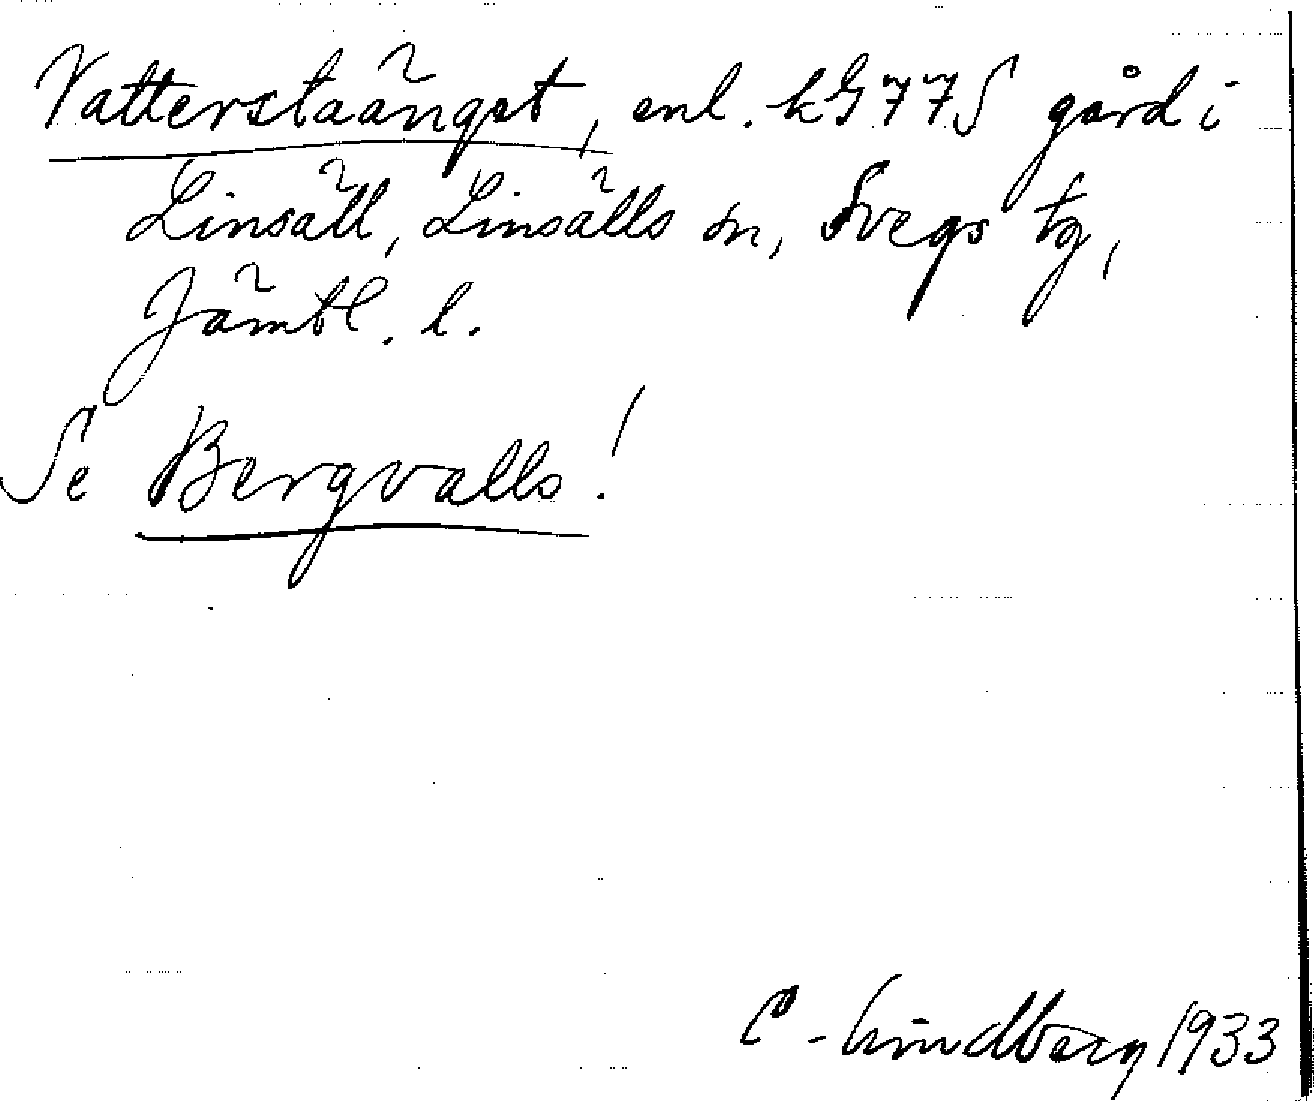 Vatterstaänget, enl. kG 77S gård i
Linsäll, Linsälls sn, Svegs tg,
Jämtl. l.
Se Bergvalls!
C. Lindberg 1933